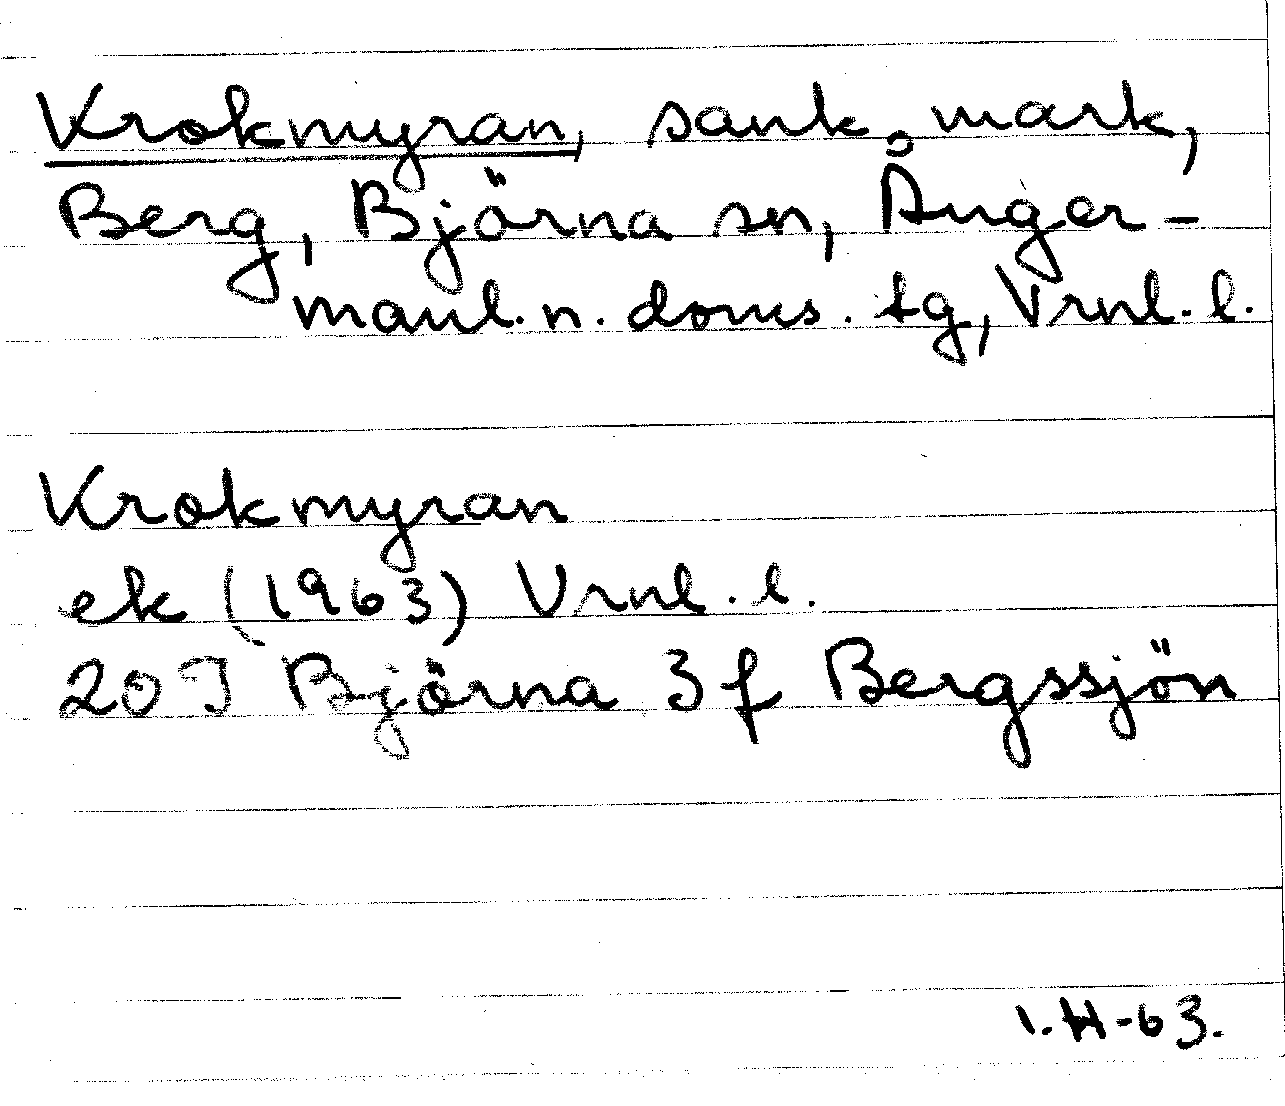 Krokmyran, sank mark,
Berg, Björna sn, Ånger-
manl. n. doms. tg, Vrnl. l.
Krokmyran
ek (1963) Vrnl. l.
20 J Björna 3 f Bergssjön
I.H-63.